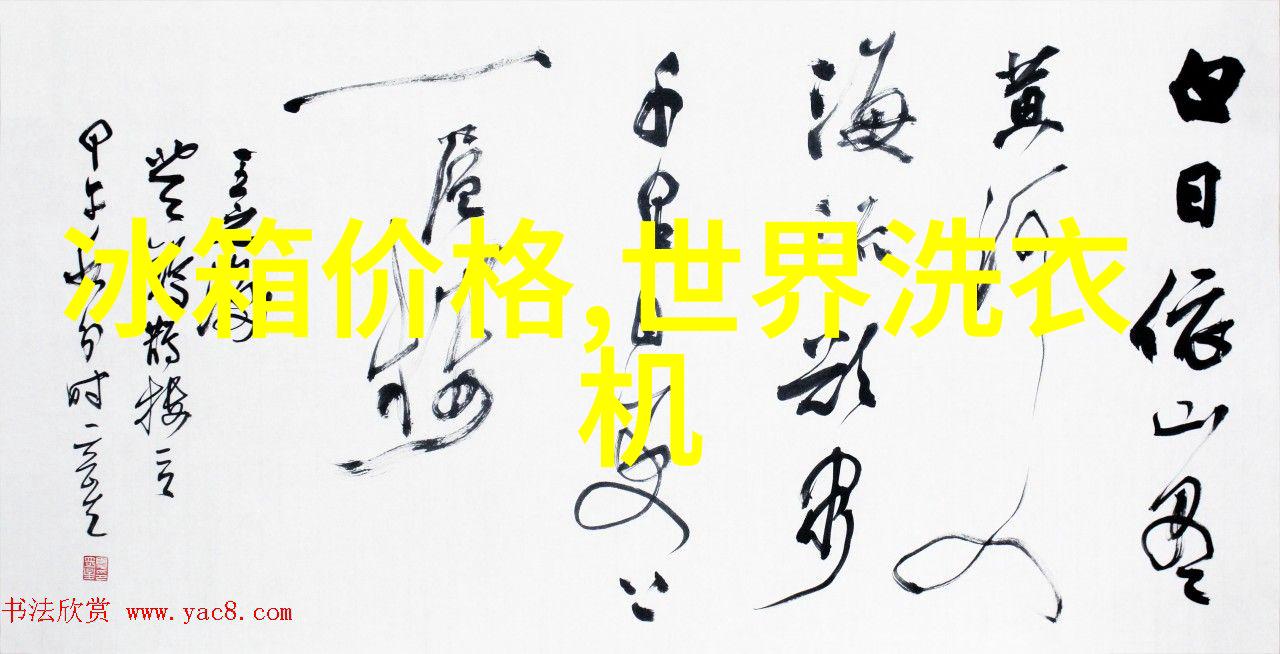 冰箱价格,世界洗衣
机
白日依山盡
黄河入
海流欲窮
千里目更上
一層樓
王之涣
甲午
时
书法欣赏 www.yac8.com